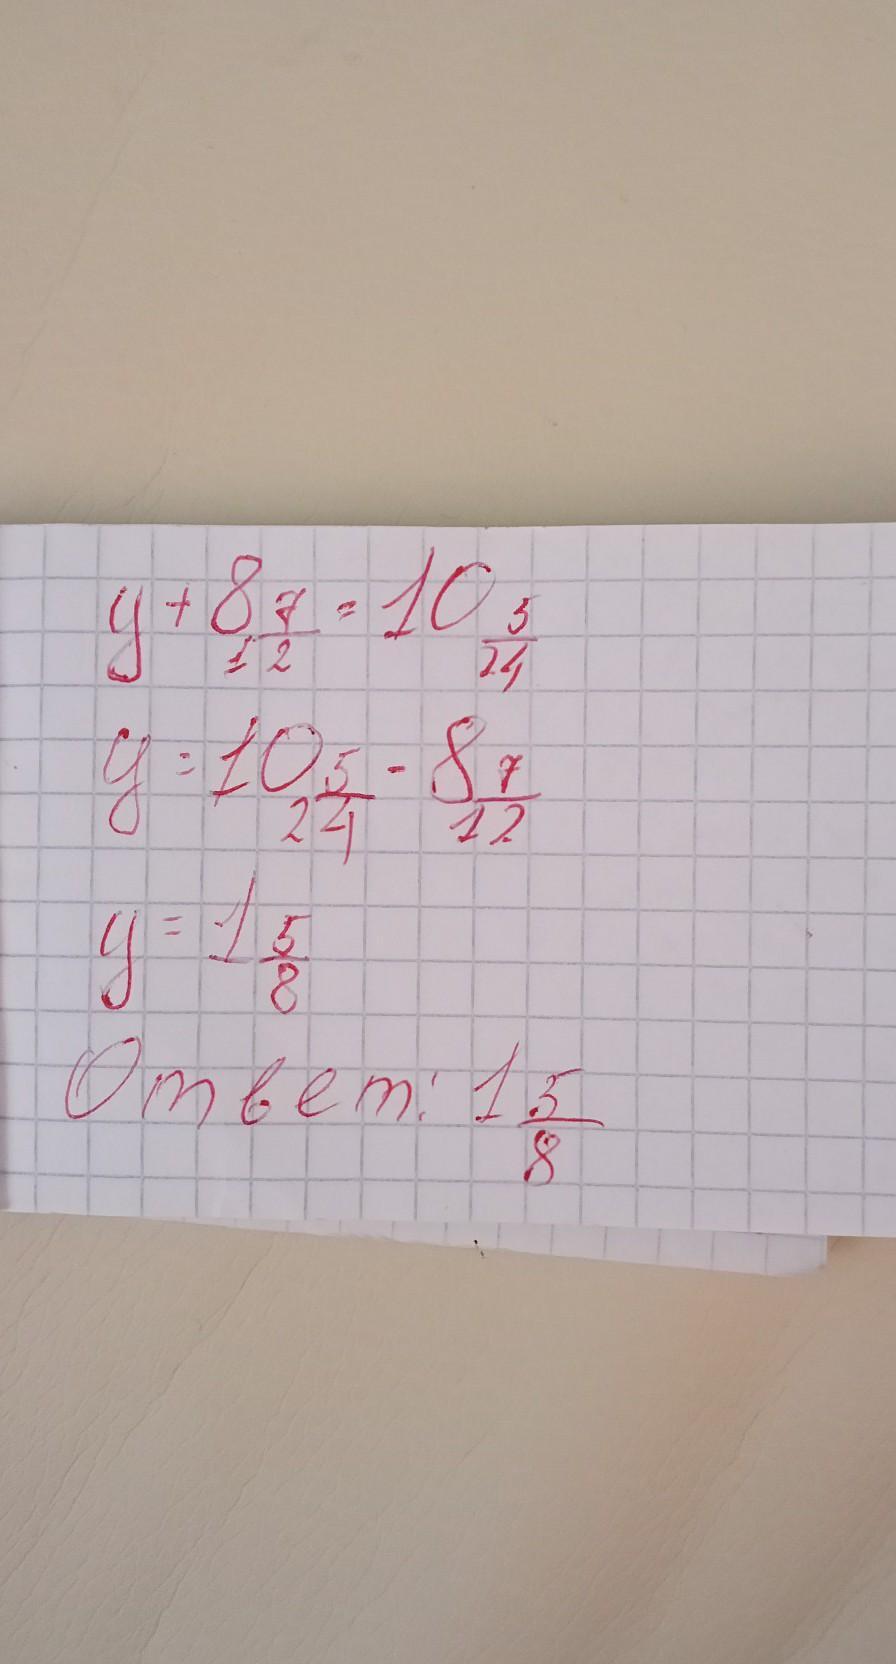 y + 8 7/12 = 10 5/24
y = 10 5/24 - 8 7/12
y = 1 5/8
Ответ: 1 5/8